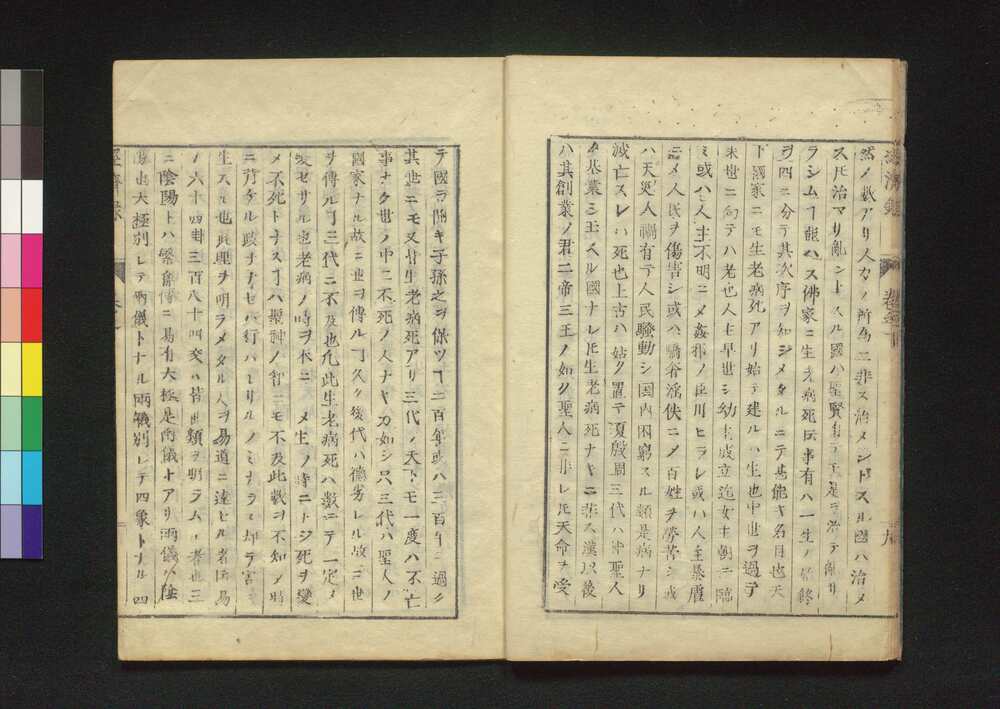 然ノ數アリ人力ノ所為ニ非ス治メントスル國ハ治メ
スㇳ圧治マリ亂ントスル國ハ聖賢有テ是ヲ治テ亂リ
ラシム丁能ハス佛家ニ生老病死ㇳ云事有ハ一生ノ始終
ヲ四ニ分テ其次序ヲ知シメタルニテ其能キ名目也天
下國家ニモ生老病死アリ始テ建ルハ生也中世ヲ過テ
末世ニ向テハ老也人主早世シ幼主成立迄女主朝ニ臨
ミ或ハ人主不明ニメ姦邪ノ臣用ヒラレ或ハ人主暴虐
ニメ人民ヲ傷害シ或ハ驕奢淫佚ニメ百姓ヲ勞苦シ或
ハ天災人禍有テ人民騒動シ国内困窮スル類是病ナリ
滅亡スレハ死也上古ハ姑ク置テ夏殷周三代ハ聖人
ノ基業シ玉ヘル國ナレ圧生老病死ナキニ非ス漢以後
ハ其創業ノ君二帝三王ノ如ク聖人ニ非レ圧天命ヲ受
テ國ヲ開キ子孫之ヲ保ツ丁二百年或ハ三百年ニ過ク
其世ニモ又皆生老病死アリ三代ノ天下モ一度ハ不亡
事ナク世ノ中ニ不死ノ人ナキカ如シ只三代ハ聖人ノ
國家ナル故ニ世ヲ傳ル丁久ク後代ハ德劣レル故ニ世
ヲ傳ル丁三代ニ不及也凡此生老病死ハ數ニテ一定メ
變セサル也老病ノ時ヲ不ニメ生ノ時ニトシ死ヲ變
メ不死トナス丁ハ聖神ノ智ニモ不及此數ヲ不知メ時
ニ背ケル政ヲナセハ行ハレサルノミナラス却テ害ヲ
生スル也此理ヲ明ラメタル人ヲ易道ニ達セル者ㇳ云易
ノ六十四卦三百八十四爻ハ皆此類ヲ明ラムル者也三
ニ陰陽トハ繋辭傳ニ易有大極是生兩儀トアリ兩儀ハ陰
陽也大極別レテ兩儀トナル兩儀別レテ四象トナル四